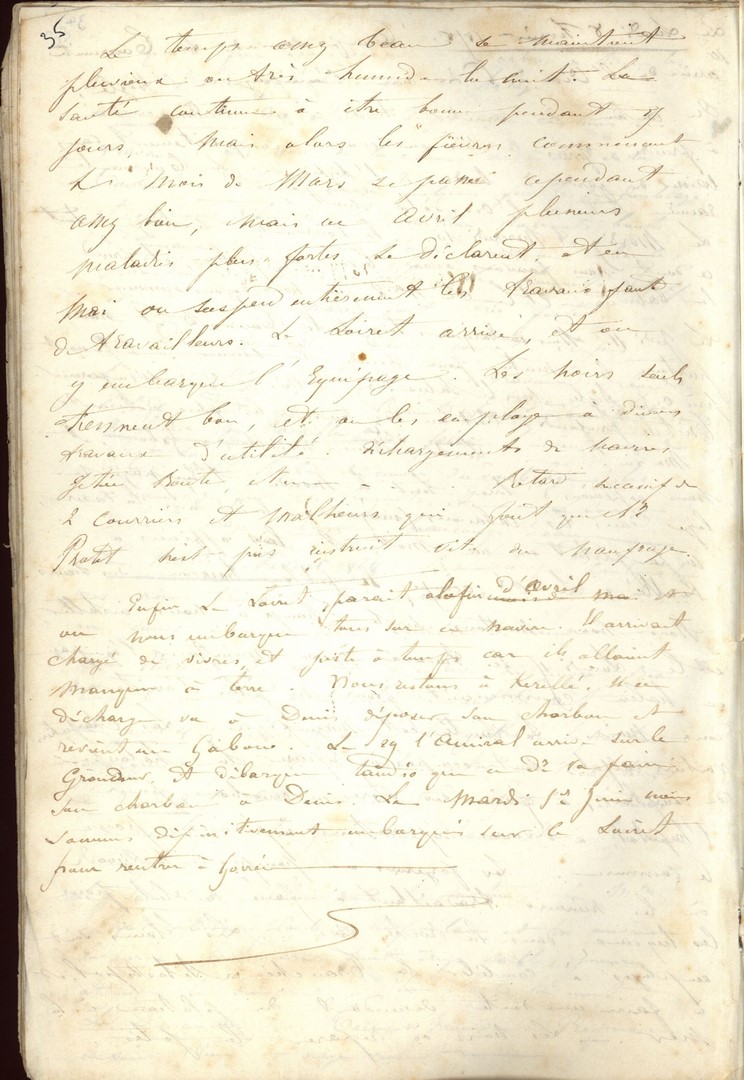 35
Le temps assez beau se maintient
pluvieux ou très humide la nuit. La
santé continue à être bonne pendant
jours, mais alors les fièvres commencent
Le mois de Mars se passe cependant
assez bien, mais en avril plusieurs
maladies plus fortes se déclarent, et en
Mai on suspend entièrement les travaux faute
de travailleurs. Le Loiret arrive, et on
y embarque l'Equipage. Les noirs seuls
tiennent bon, et on les employe à divers
travaux d'utilité. déchargements de navires
jetée Route, . . . Retard de
2 courriers et malheurs qui font que Mr
Protet n'est pas instruit vite du naufrage.
Enfin Le Loiret parait à la fin d'avril mai et
on nous embarque tous sur ce navire. Il arrivait
chargé de vivres, et juste à temps car ils allaient
manquer à terre. Nous restons à Kerellé.
décharge va à Denis déposer son charbon et
revient au Gabon. Le 29 l'Amiral arrive sur le
Grondeur, et débarque tandis que ce Dr va faire
son charbon à Denis. Le Mardi 1er Juin nous
sommes définitivement embarqués sur le Loiret
pour rentrer à Gorée